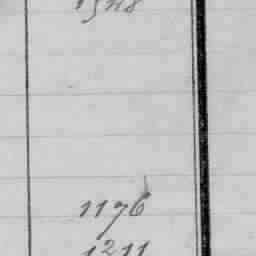 1176
1211